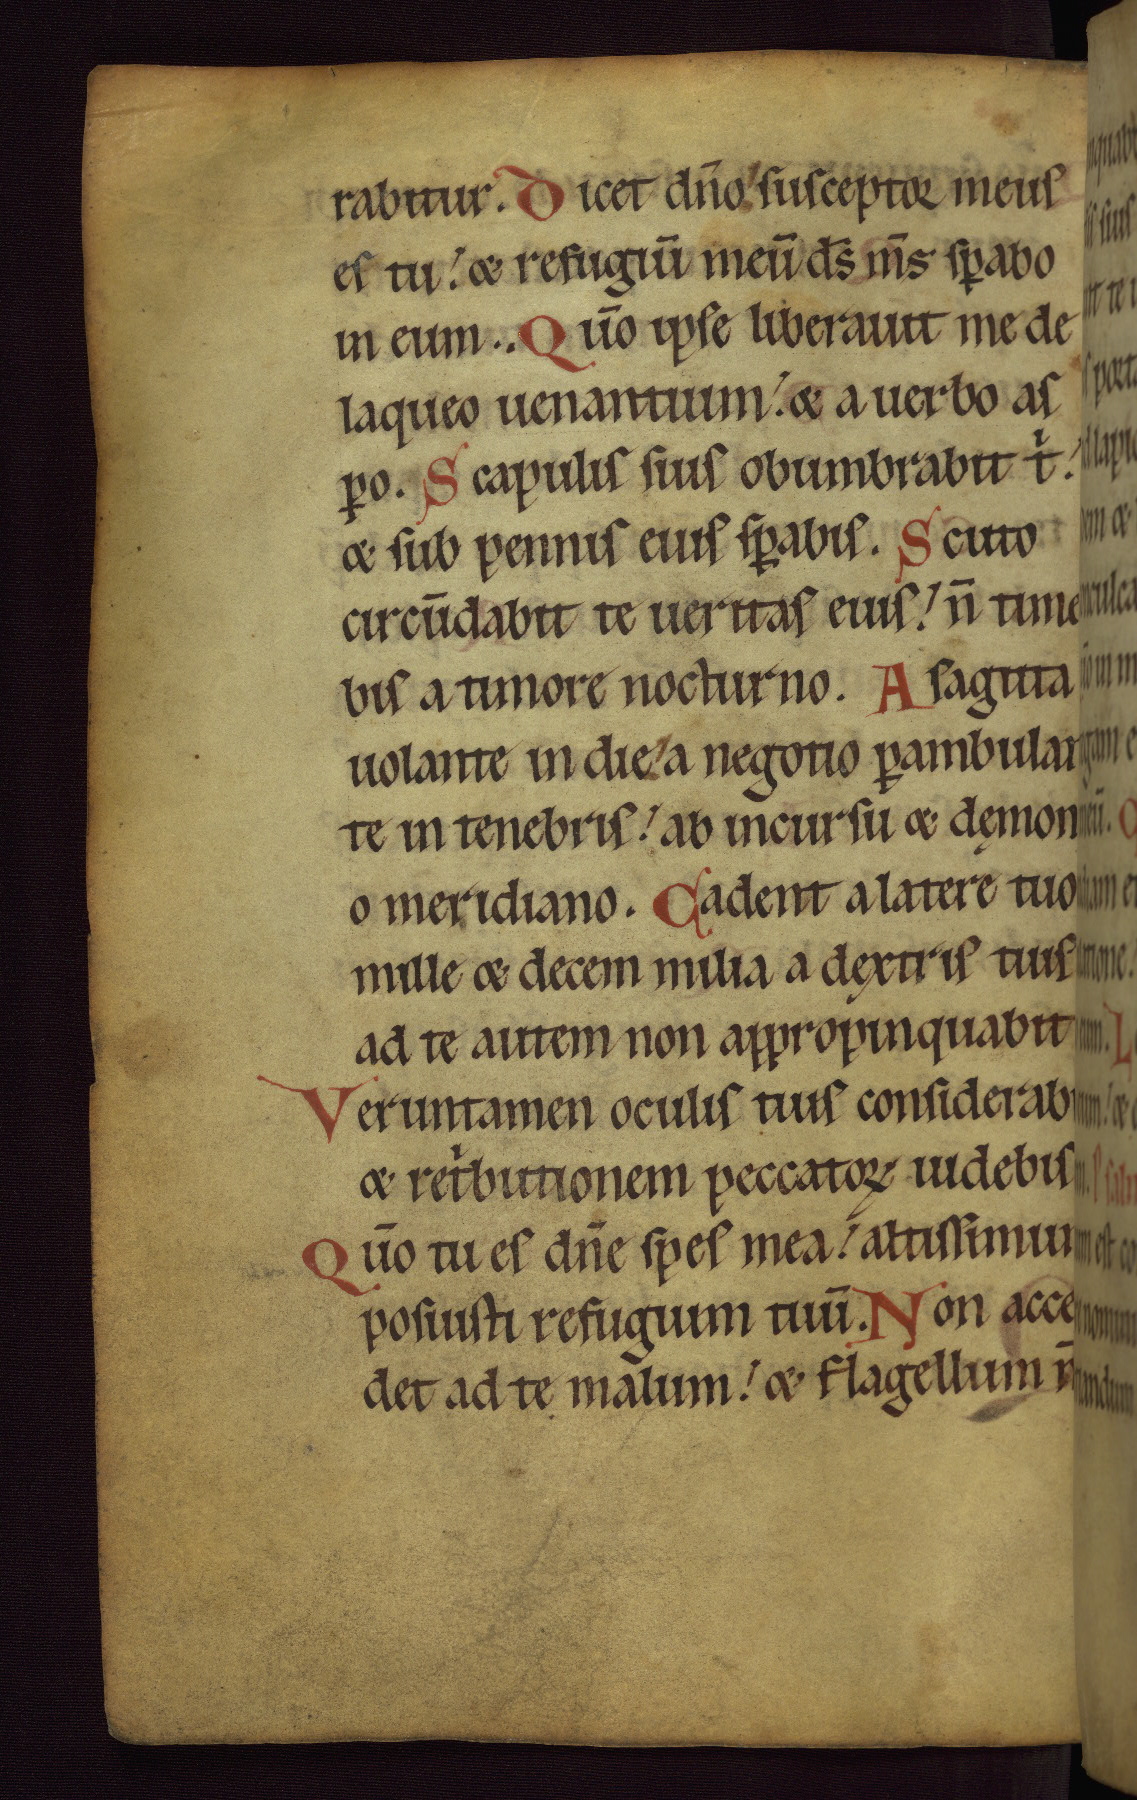 rabitur. Dicet dn̄o! susceptor meus
es tu! & refugiū meū ds̄ ms̄ sꝑabo
in eum.. Qūo ipse liberauit me de
laqueo uenantium! & a uerbo as
ꝑo. Scapulis suis obumbrabit t̍!
& sub pennis eius sꝑabis. Scuto
circūdabit te ueritas eius! n̄ time
bis a timore nocturno. A sagitta
uolante in die! a negotio ꝑambulan
te in tenebris! ab incursu & dęmon
o meridiano. Cadent a latere tuo
mille & decem milia a dextris tuis
ad te autem non appropinquabit
Veruntamen oculis tuis considerab
& ret̍butionem peccatoꝝ uidebis
Qūo tu es dn̄e spes mea! altissimum
posuisti refugium tuū. Non acce
det ad te malum! & flagellum n̄